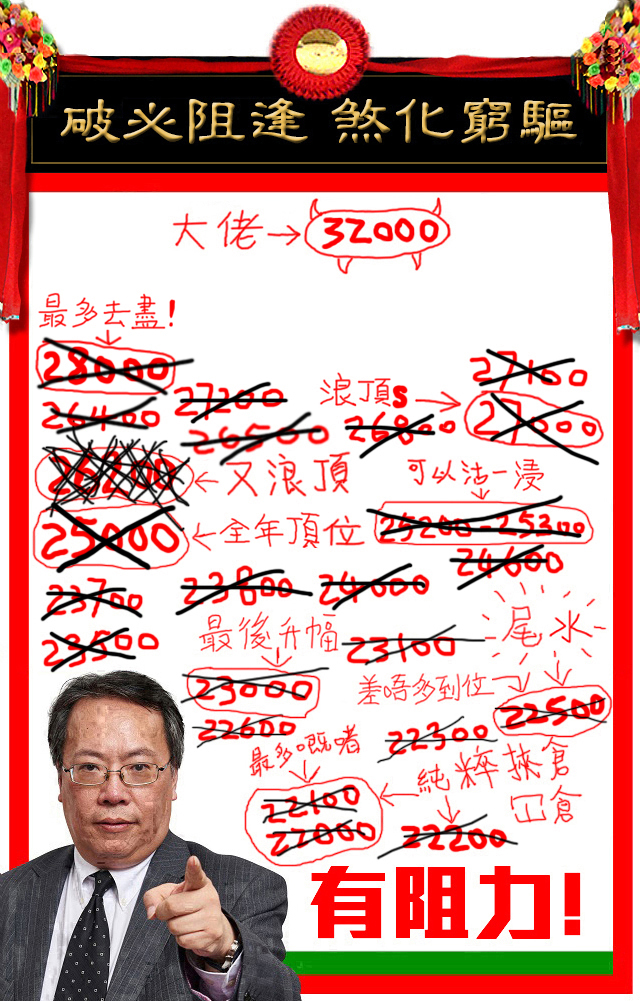 驅窮化煞 逢阻必破
大佬→32000
最多去盡!
28000
27100
27200
浪頂s→27000
26400
26500
26800
26200←又浪頂
可以沽一浸
25000←全年頂位
25200-25300
24600
23700
23800
24000
23500
最後升幅
23100
尾水
23000
差唔多到位→22500
22600
22300
最多嘅啫
22100
22000
←純粹挾倉
冚倉
22200
有阻力!